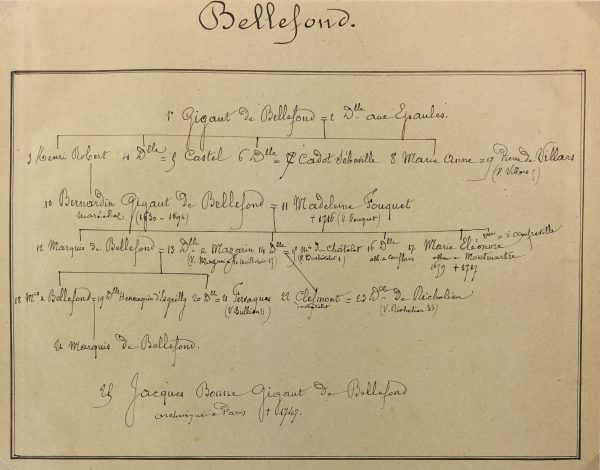 Bellefond.
1 Gigaut de Bellefond = 2 Dlle aux Epaules.
3 Henri Robert 4 Dlle = 5 Castel 6 Dlle = 7 Cadot Sébeville 8 Marie Anne = 9 Pierre de Villars
(V. Villars
10 Bernardin Gigaut de Bellefond = 11 Madeleine Fouquet
Maréchal (1630 - 1694) + 1716 (V. Fouquet)
12 Marquis de Bellefond = 13 Dlle de Mazarin 14 Dlle = 15 Mis du Châtelet 16 Dlle 17 Marie Eléonore
(V. Mazarin (V. Duchâtelet abb a Conflans abb a Montmartre
1659 + 1717
18 Mis de Bellefond = 19 Dlle Hennequin d'Ecquilly 20 Dlle = 21 Fervaques 22 Clefmont = 23 Dlle de Richelieu
(V. Bullion 11) duchatelet (V. Richelieu 33)
24 Marquis de Bellefond.
25 Jacques Bonne Gigaut de Bellefond
archevêque a Paris + 1747.